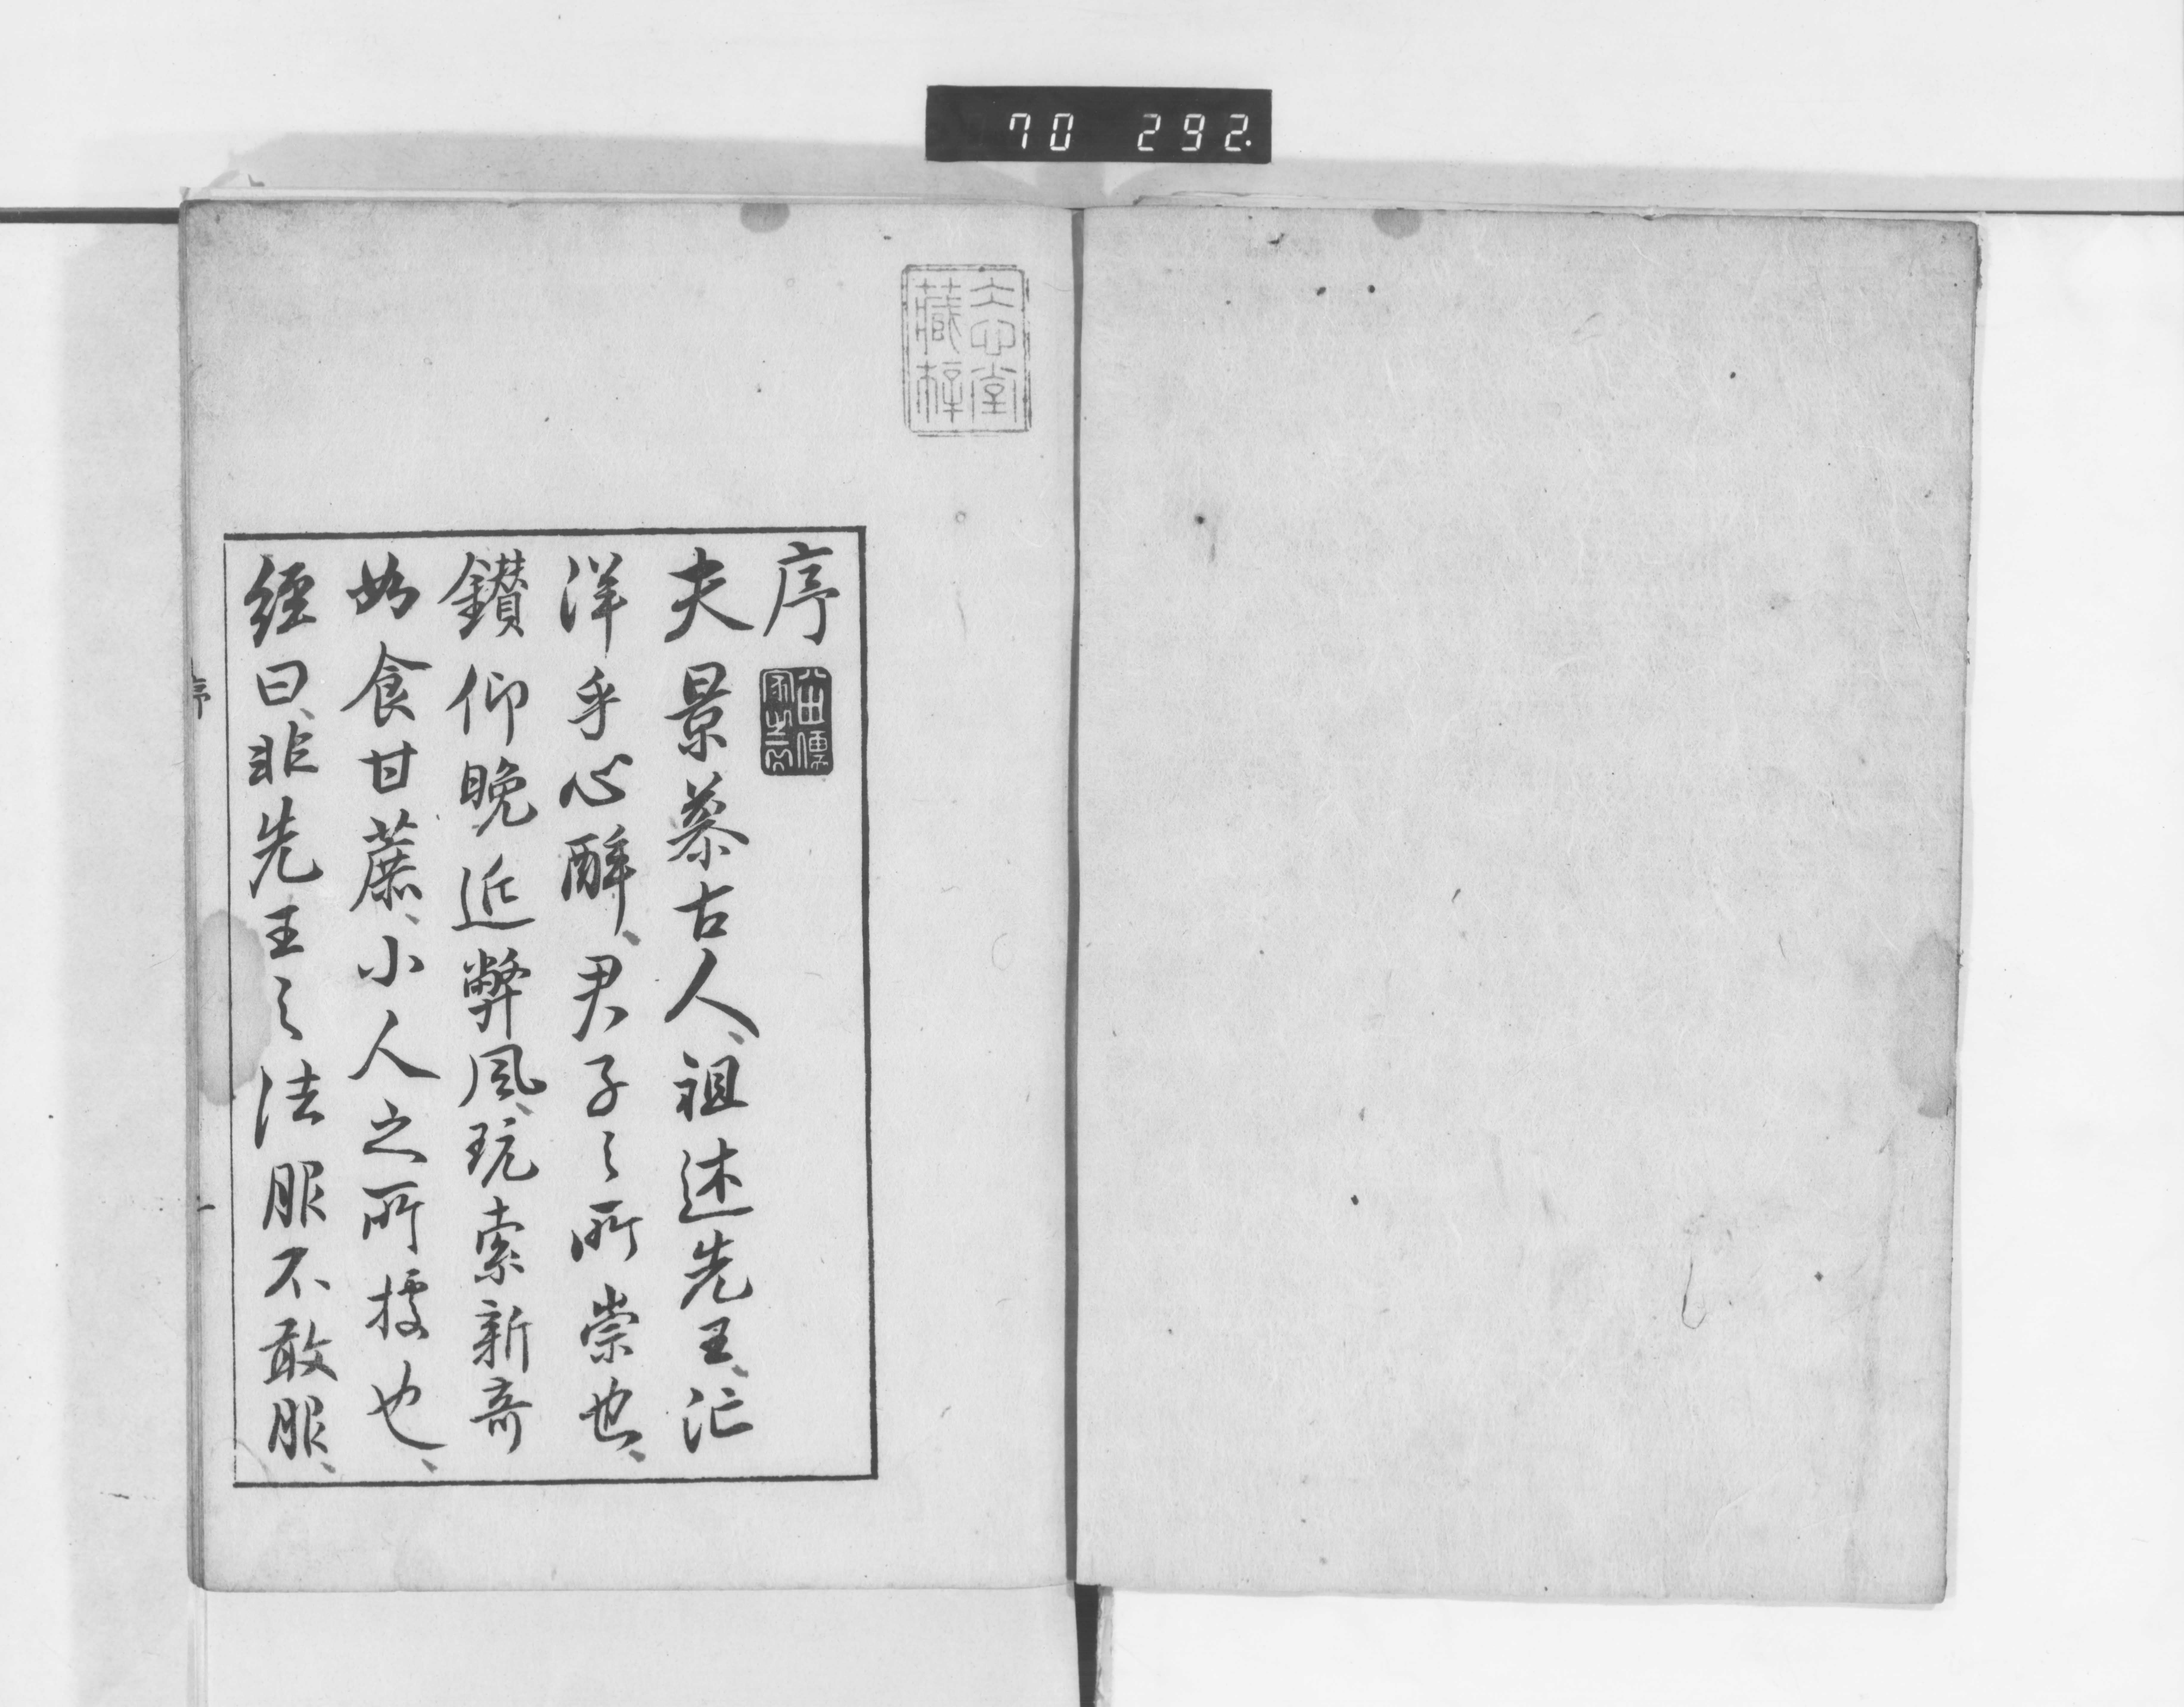 70 292.
志堂
藏梓
序
夫景慕古人、祖述先王、茫
洋乎心醉、君子之所崇也、
鑚仰晩近弊風、玩索新奇
如食甘蔗、小人之所擾也、
經曰、非先王之法服不敢服、
序
一